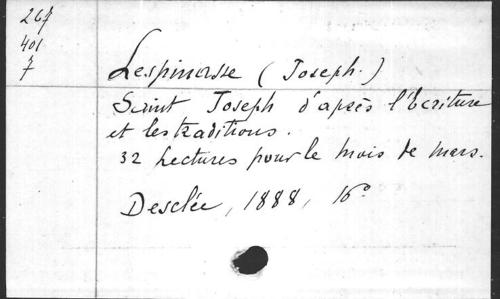 267
401
7
Lespinasse (Joseph.)
Saint Joseph d'après l'Ecriture
et les traditions.
32 Lectures pour le mois de mars.
Desclée, 1888, 16°